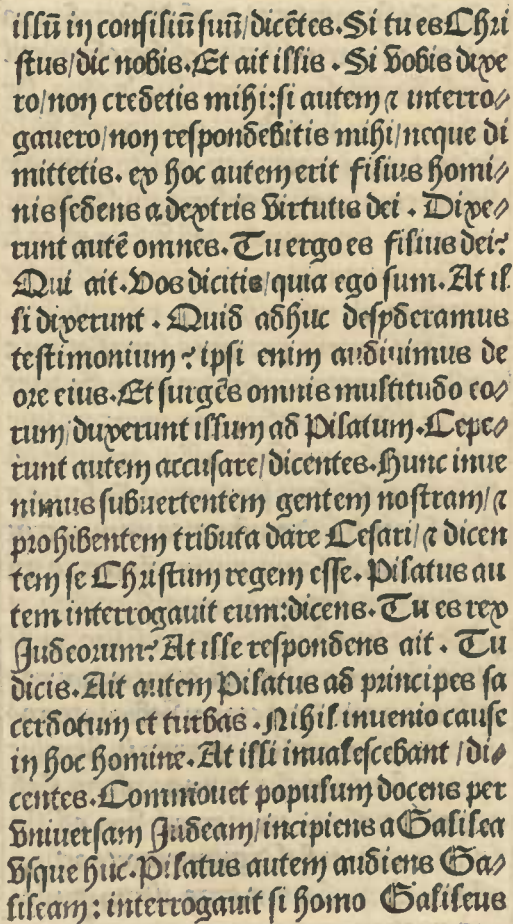 illū in consiliū suū/dicētes. Si tu es Chri
stus/dic nobis. Et ait illis . Si vobis dixe
ro/non credetis mihi: si autem ⁊ interro⸗
gauero/non respondebitis mihi/neque di
mittetis. ex hoc autem erit filius homi⸗
nis sedens a dextris virtutis dei . Dixe⸗
runt autē omnes. Tu ergo es filius dei?
Qui ait. Vos dicitis/quia ego sum. At il
li dixerunt . Quid adhuc desyderamus
testimonium ? ipsi enim audiuimus de
ore eius. Et surgēs omnis multitudo eo⸗
rum/duxerunt illum ad Pilatum. Cepe⸗
runt autem accusare/dicentes. Hunc inue
nimus subuertentem gentem nostram/⁊
prohibentem tributa dare Cesari/⁊ dicen
tem se Christum regem esse. Pilatus au
tem interrogauit eum: dicens. Tu es rex
Judeorum? At ille respondens ait . Tu
dicis. Ait autem Pilatus ad principes sa
cerdotum et turbas . Nihil inuenio cause
in hoc homine. At illi inualescebant /di⸗
centes. Commouet populum docens per
vniuersam Judeam/incipiens a Galilea
vsque huc. Pilatus autem audiens Ga⸗
lileam : interrogauit si homo Galileus